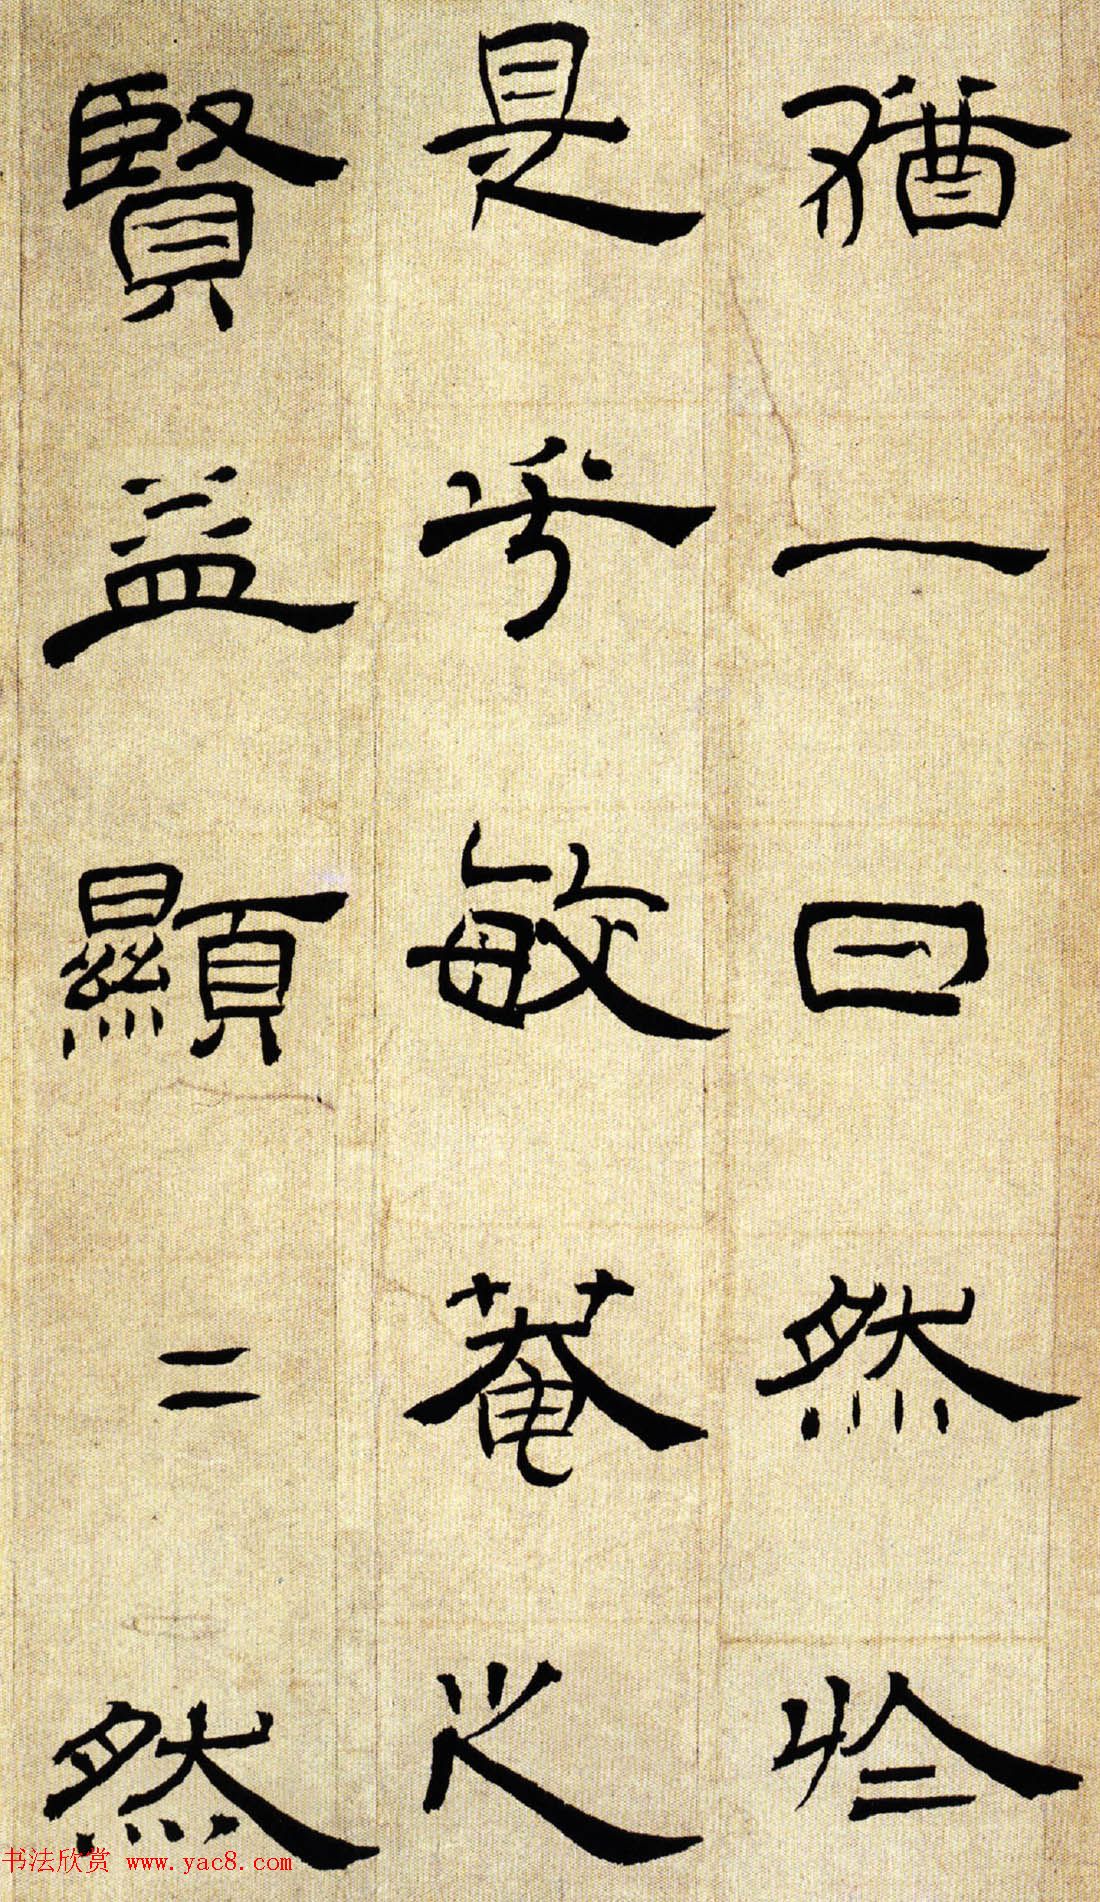 猶一日然於
是乎敏菴之
賢益顯二然
书法欣赏 www.yac8.com